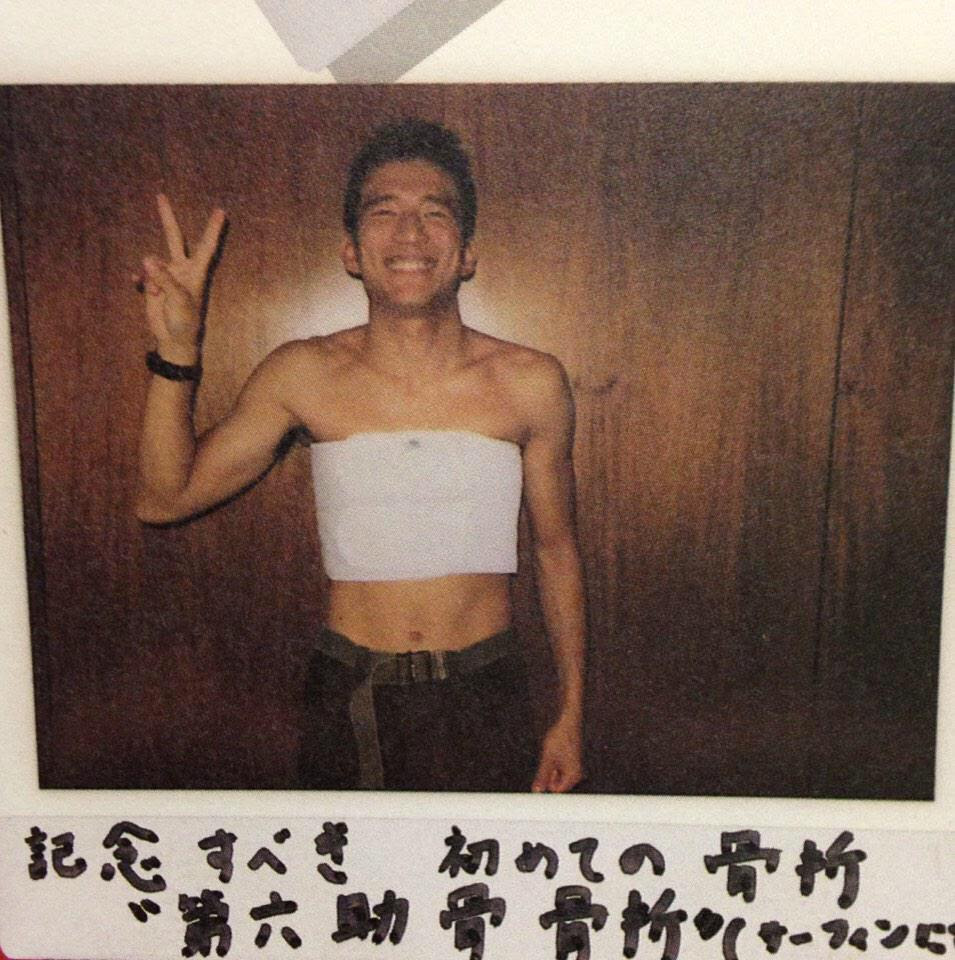 記念すべき 初めての 骨折
〝第六助骨骨折〟(サーフィンにて